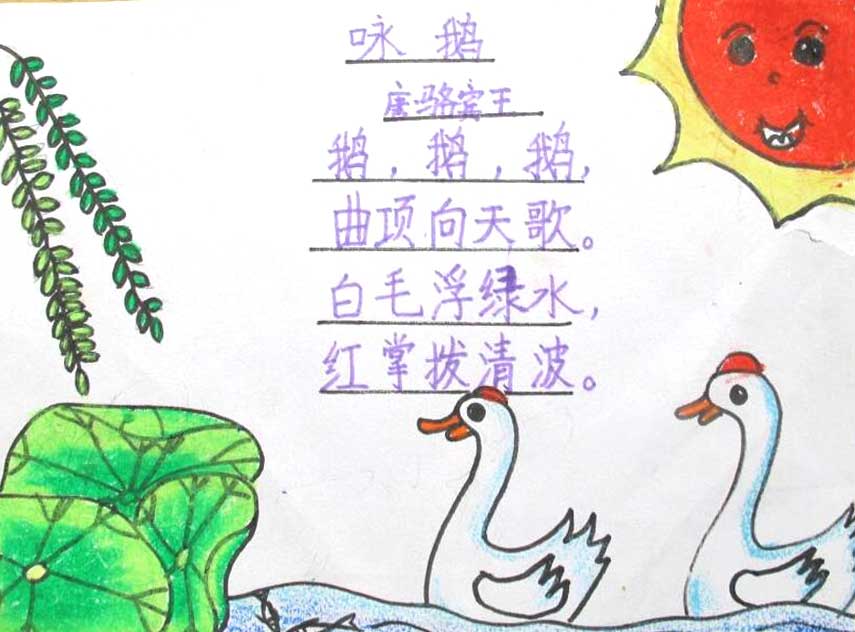 咏 鹅
唐骆宾王
鹅，鹅，鹅，
曲项向天歌。
白毛浮绿水，
红掌拨清波。